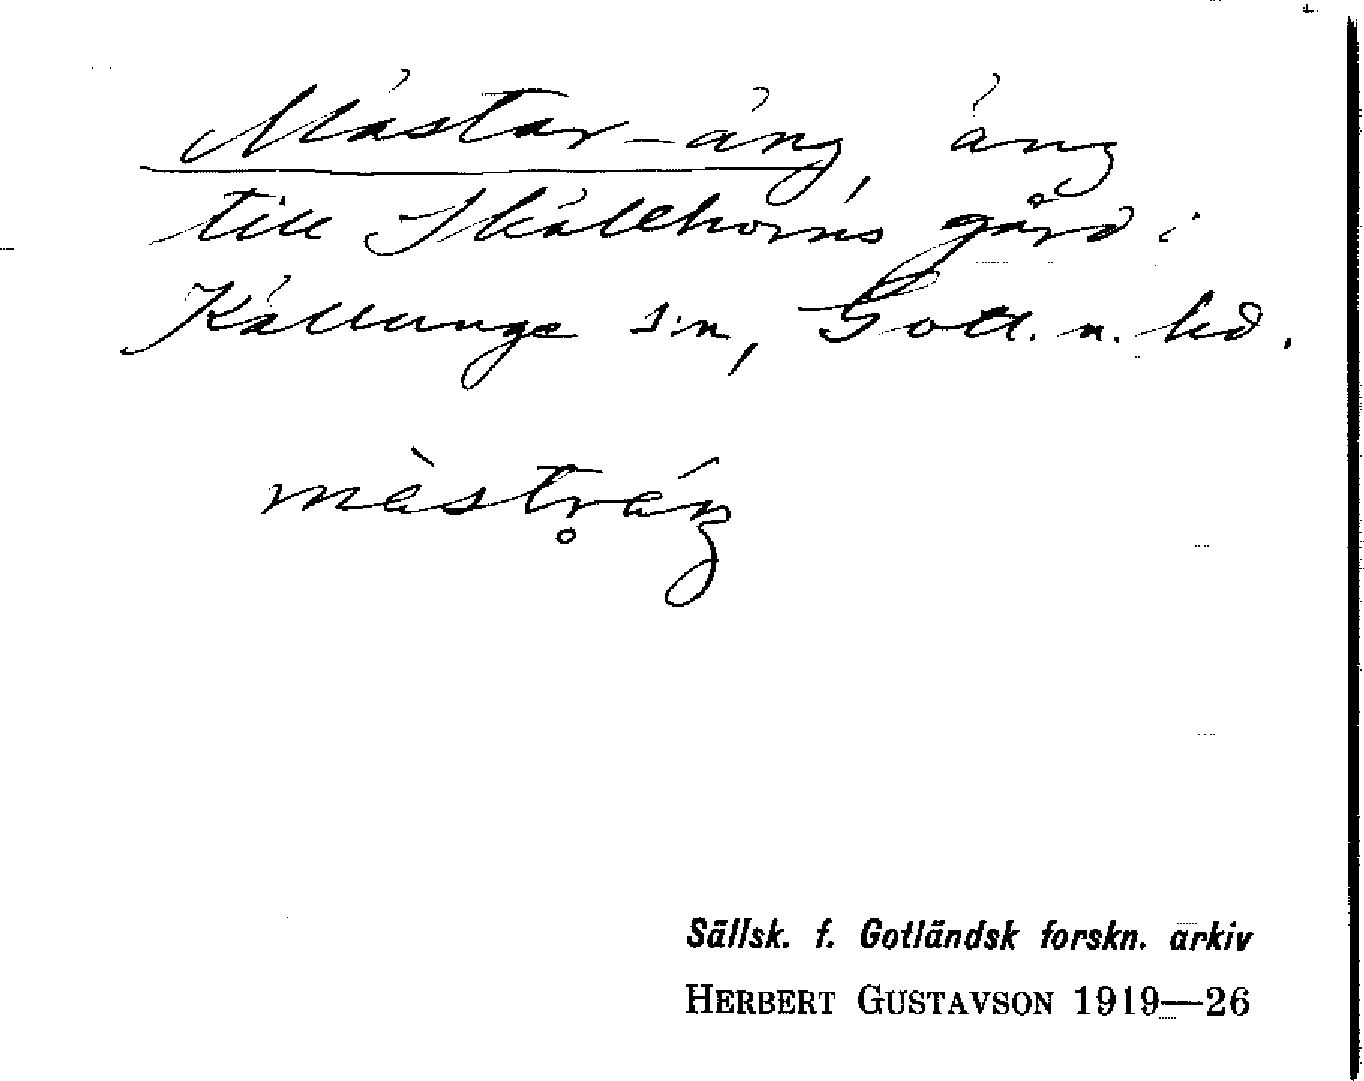 Mästar-äng, äng
till Skällhorns gård i
Källunge s:n, Gotl. n. hd.
mèstr̥áŋ
Sällsk. f. Gotländsk forskn. arkiv
HERBERT GUSTAVSON 1919—26